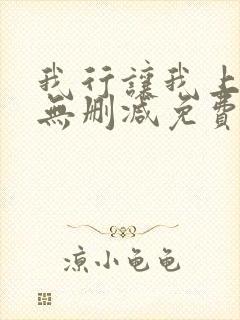 我行讓我上
無刪減免費
凉小龟龟